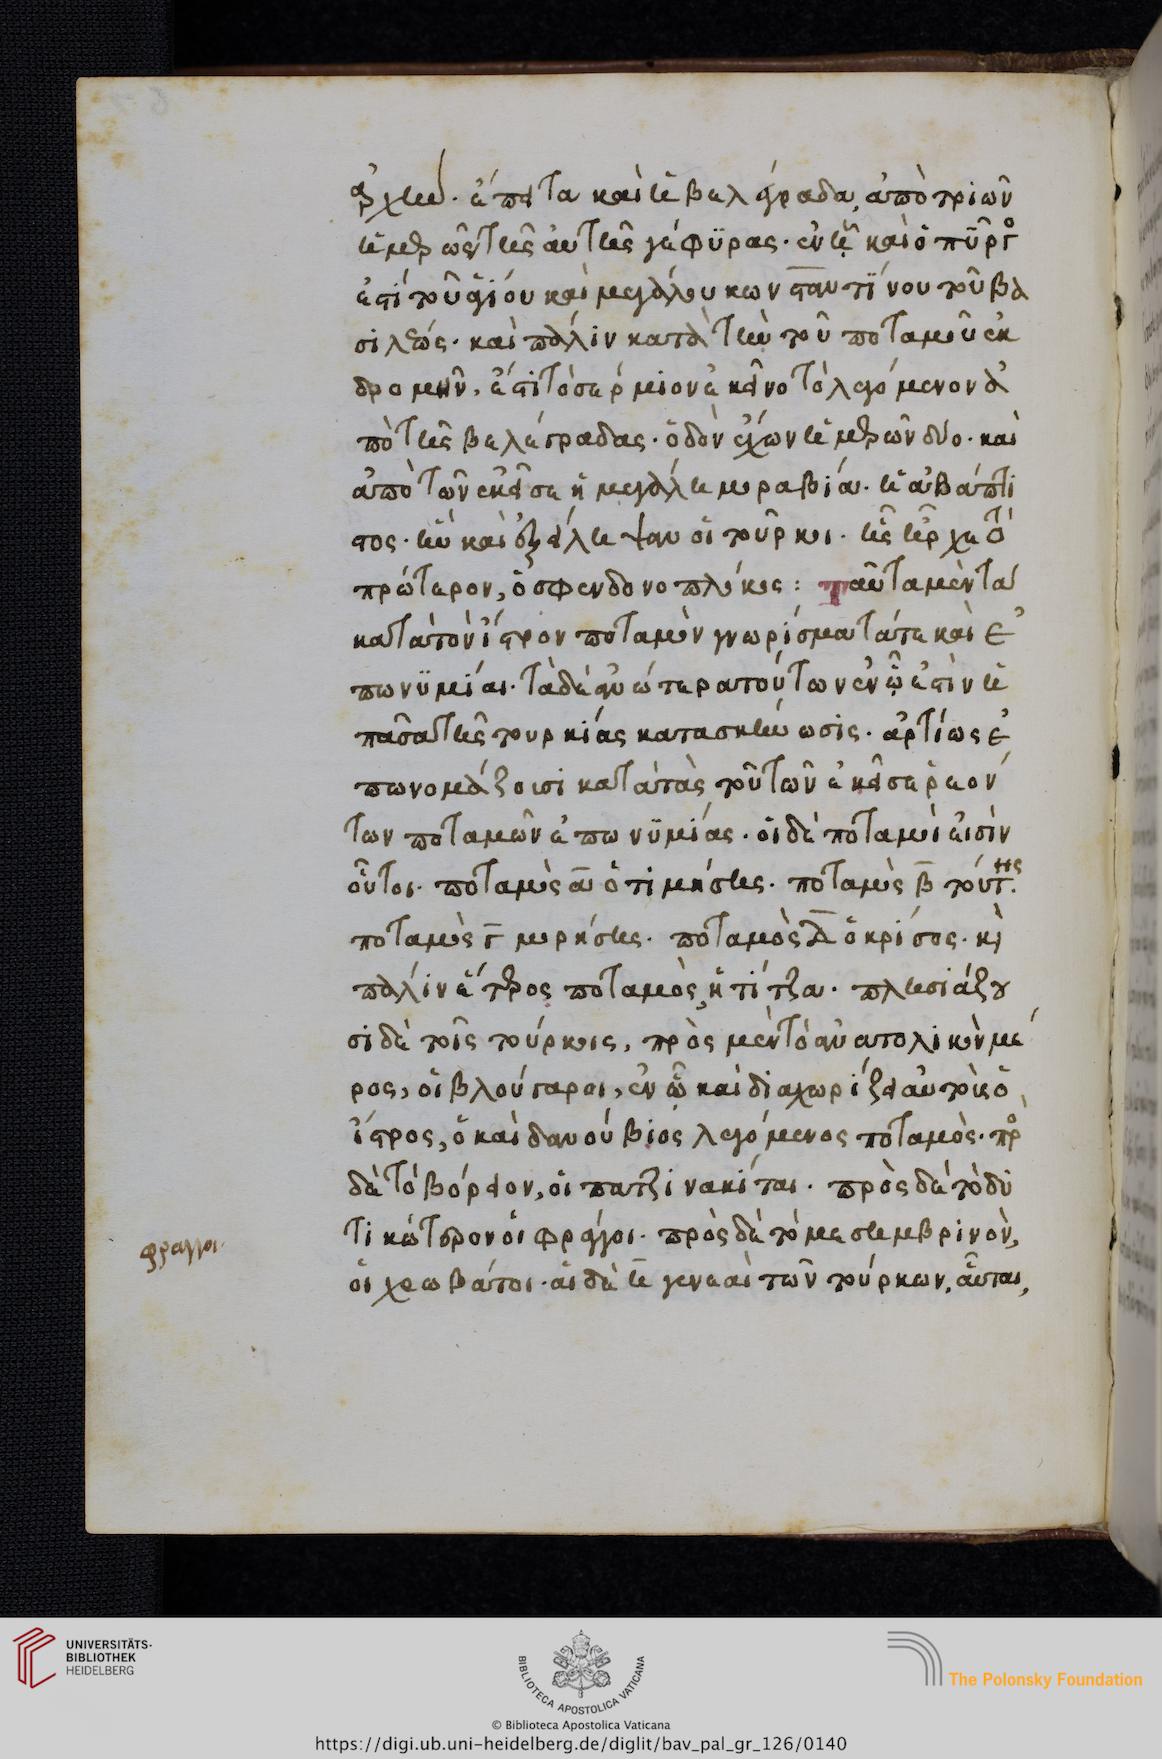 ἀρχήν. ἔπειτα καὶ ἡ βελέγραδα, ἀπὸ τριῶν
ἡμερῶν τῆς αὐτῆς γεφύρας. ἐν ᾗ καὶ ὁ πύργος
ἐστί τοῦ ἁγίου καὶ μεγάλου κωνσταντίνου τοῦ βα
σιλέως. καὶ πάλιν κατὰ τὴν τοῦ ποταμοῦ ἐκ
δρομὴν, ἐστὶ τὸ σέρμιον ἐκεῖνο τὸ λεγόμενον ἀ
πὸ τῆς βελέγραδας. ὁδὸν ἔχων ἡμερῶν δύο. καὶ
ἀπὸ τῶν ἐκεῖσε ἡ μεγάλη μοραβία. ἡ ἀβάπτι
στος. ἣν καὶ ἐξήλειψαν οἱ τοῦρκοι. ἧς ἦρχε τὸ
πρότερον, ὁ σφενδονοπλόκος: Ταῦτα μὲν τὰ
κατὰ τὸν ἴστρον ποταμὸν γνωρίσματά τε καὶ ἐ
πωνυμίαι. τὰ δὲ ἀνώτερα τούτων ἐν ᾧ ἐστὶν ἡ
πᾶσα τῆς τουρκίας κατασκήνωσις. ἀρτίως ἐ
πωνομάζουσι κατὰ τὰς τοῦ τῶν ἐκεῖσε ῥεόν
των ποταμῶν ἐπωνυμίας. οἱ δὲ ποταμοὶ εἰσὶν
οὗτοι. ποταμὸς α ὁ τιμήσης. ποταμὸς β τούτης.
ποταμὸς γ μορήσης. ποταμὸς Δ ὁ κρίσος. καὶ
πάλιν ἕτερος ποταμὸς, ἡ τίτζα. πλησιάζου
σι δὲ τοῖς τούρκοις, πρὸς μὲν τὸ ἀνατολικὸν μέ
ρος, οἱ βλούγαροι, ἐν ᾧ καὶ διαχωρίζει αὐτοὺς ὁ
ἴστρος, ὁ καὶ δανούβιος λεγόμενος ποταμὸς. πρὸς
δὲ τὸ βόρειον, οἱ πατζινακίται. πρὸς δὲ τὸ δυ
τικώτερον οἱ φράγγοι. πρὸς δὲ τὸ μεσημβρινὸν,
οἱ χρωβάτοι. αἱ δὲ η γενεαὶ τῶν τούρκων, αὗται,
φραγγοι.
UNIVERSITÄTS-
BIBLIOTHEK
HEIDELBERG
BIBLIOTECA APOSTOLICA VATICANA
The Polonsky Foundation
© Biblioteca Apostolica Vaticana
https://digi.ub.uni-heidelberg.de/diglit/bav_pal_gr_126/0140